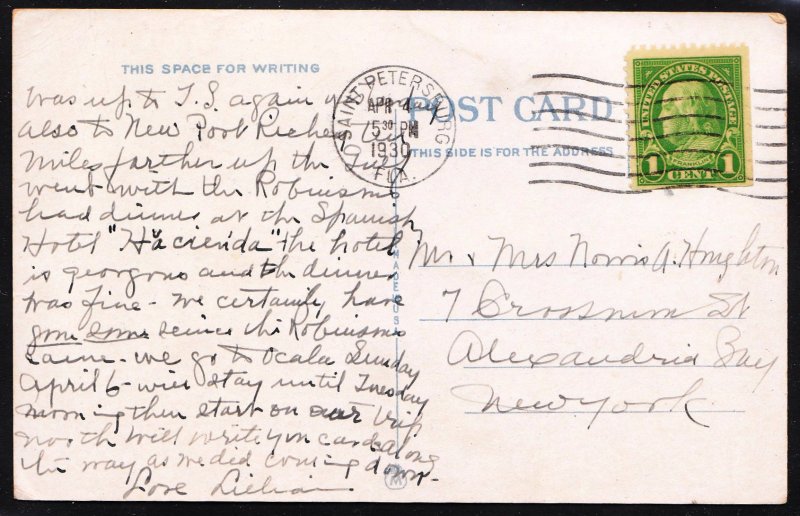 THIS SPACE FOR WRITING
POST CARD
THIS SIDE IS FOR THE ADDRESS
SAINT PETERSBURG
APR 4
5 30 PM
1930
FLA.
UNITED STATES POSTAGE
FRANKLIN
1 CENT 1
MADE US
Was up to T.S. again
also to New Port Richey
miles farther up the
went with the Robinsons
had dinner at the Spanish
Hotel "Hacienda" the hotel
is georgous and the dinner
was fine - we certainly have
gone some since the Robinsons
came - we go to Ocala Sunday
April 6 - will stay until Tuesday
morning then start on our trip
north will write you cards along
the way as we did coming down -
Love Lillian
Mr. + Mrs Norris A. Houghton
7 Crossmon St
Alexandria Bay
New York